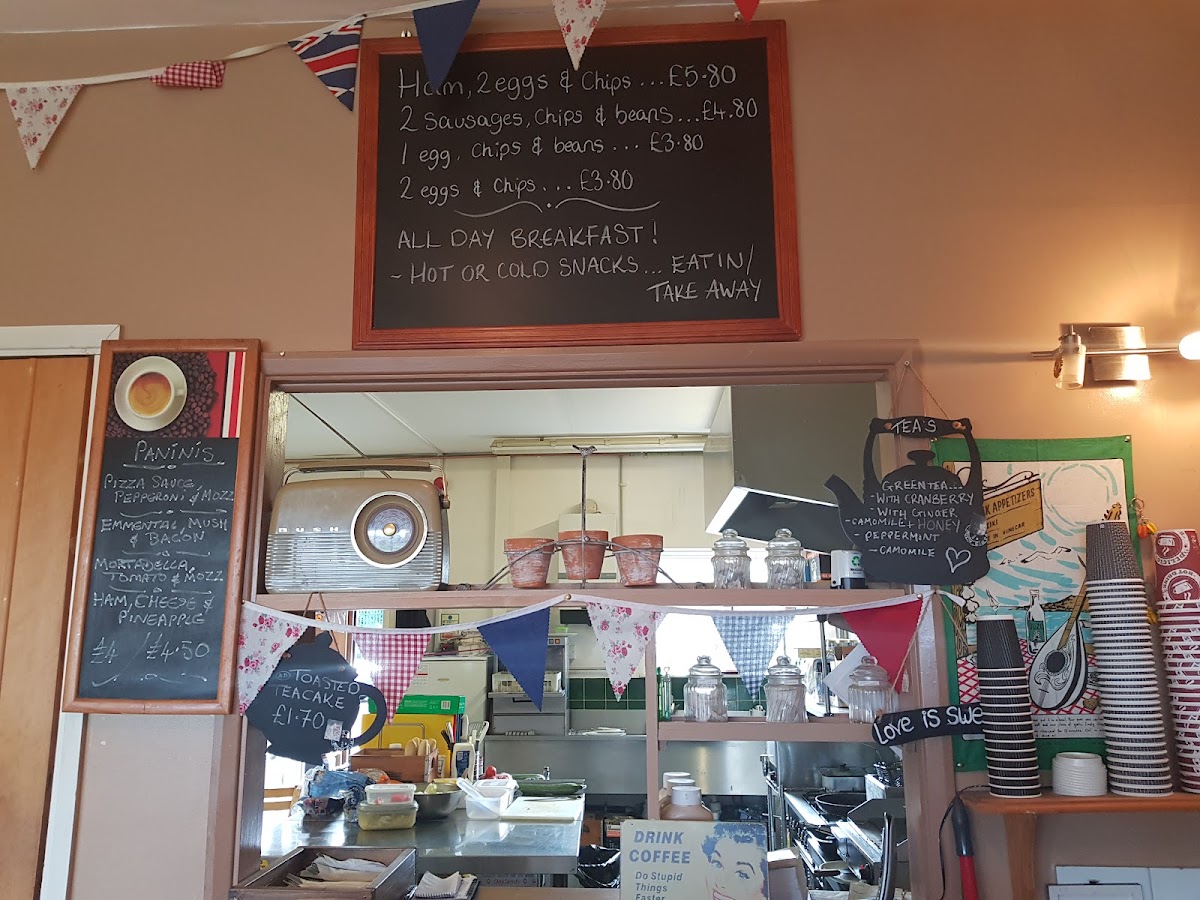 Ham, 2 eggs & Chips ... £5.80
2 Sausages, Chips & beans ... £4.80
1 egg, Chips & beans ... £3.80
2 eggs & Chips ... £3.80
ALL DAY BREAKFAST!
- HOT OR COLD SNACKS... EAT IN/
TAKE AWAY
PANINIS
PIZZA SAUCE,
PEPPERONI & MOZZ
EMMENTAL, MUSH
& BACON
MORTADELLA,
TOMATO & MOZZ
HAM, CHEESE &
PINEAPPLE
£4 / £4.50
BUSH
TEA'S
GREEN TEA...
- WITH CRANBERRY
- WITH GINGER
- CAMOMILE + HONEY
- PEPPERMINT
- CAMOMILE
APPETIZERS
TOASTED
TEACAKE
£1.70
LOVE IS SWE
DRINK
COFFEE
Do Stupid
Things
Faster